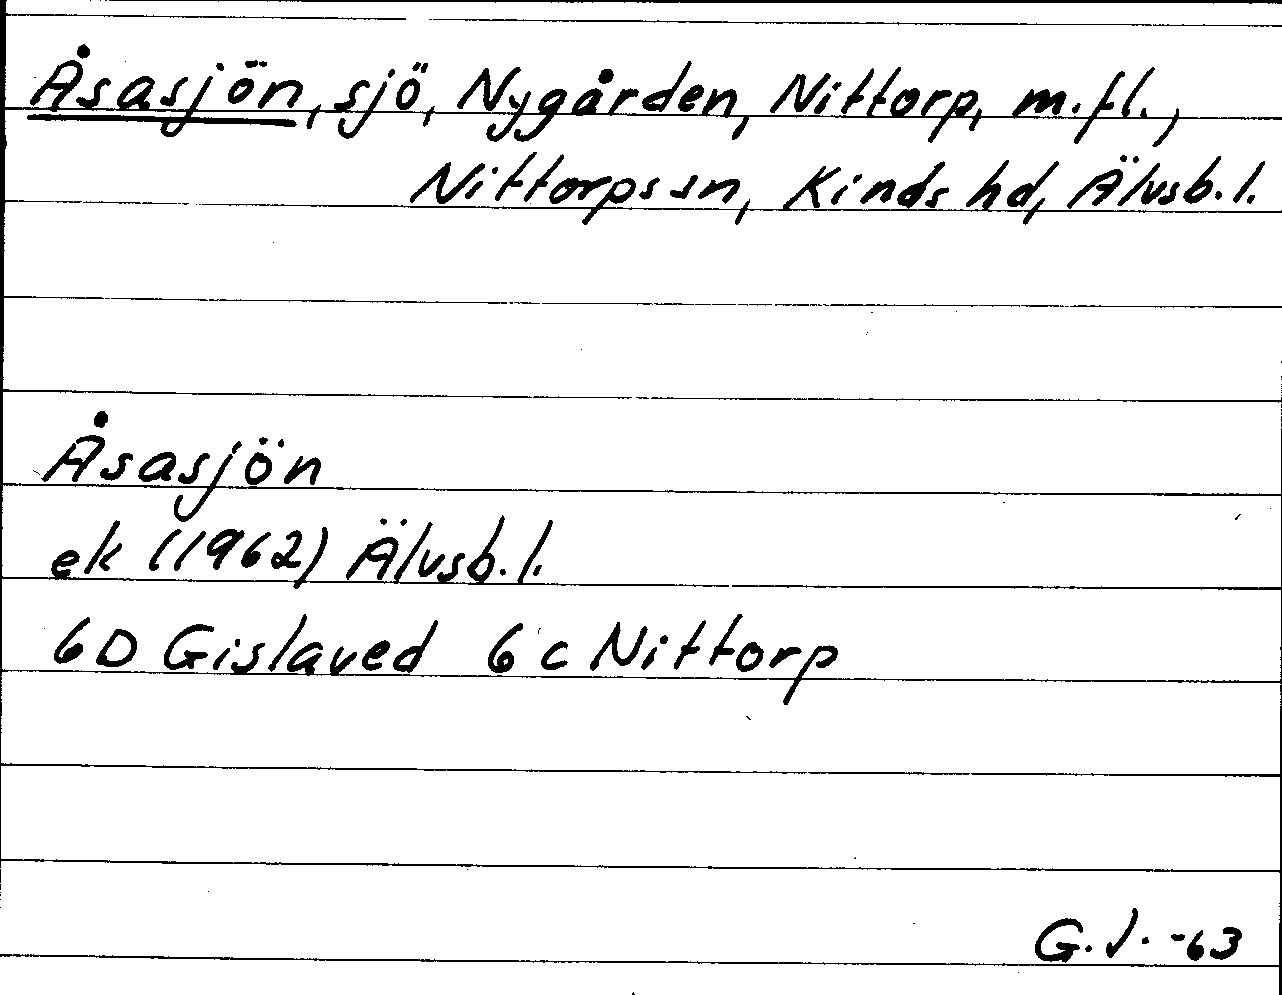 Åsasjön, sjö, Nygården, Nittorp, m.fl.,
Nittorps sn, Kinds hd, Älvsb. l.
Åsasjön
ek (1962) Älvsb. l.
6D Gislaved 6c Nittorp
G.J. -63